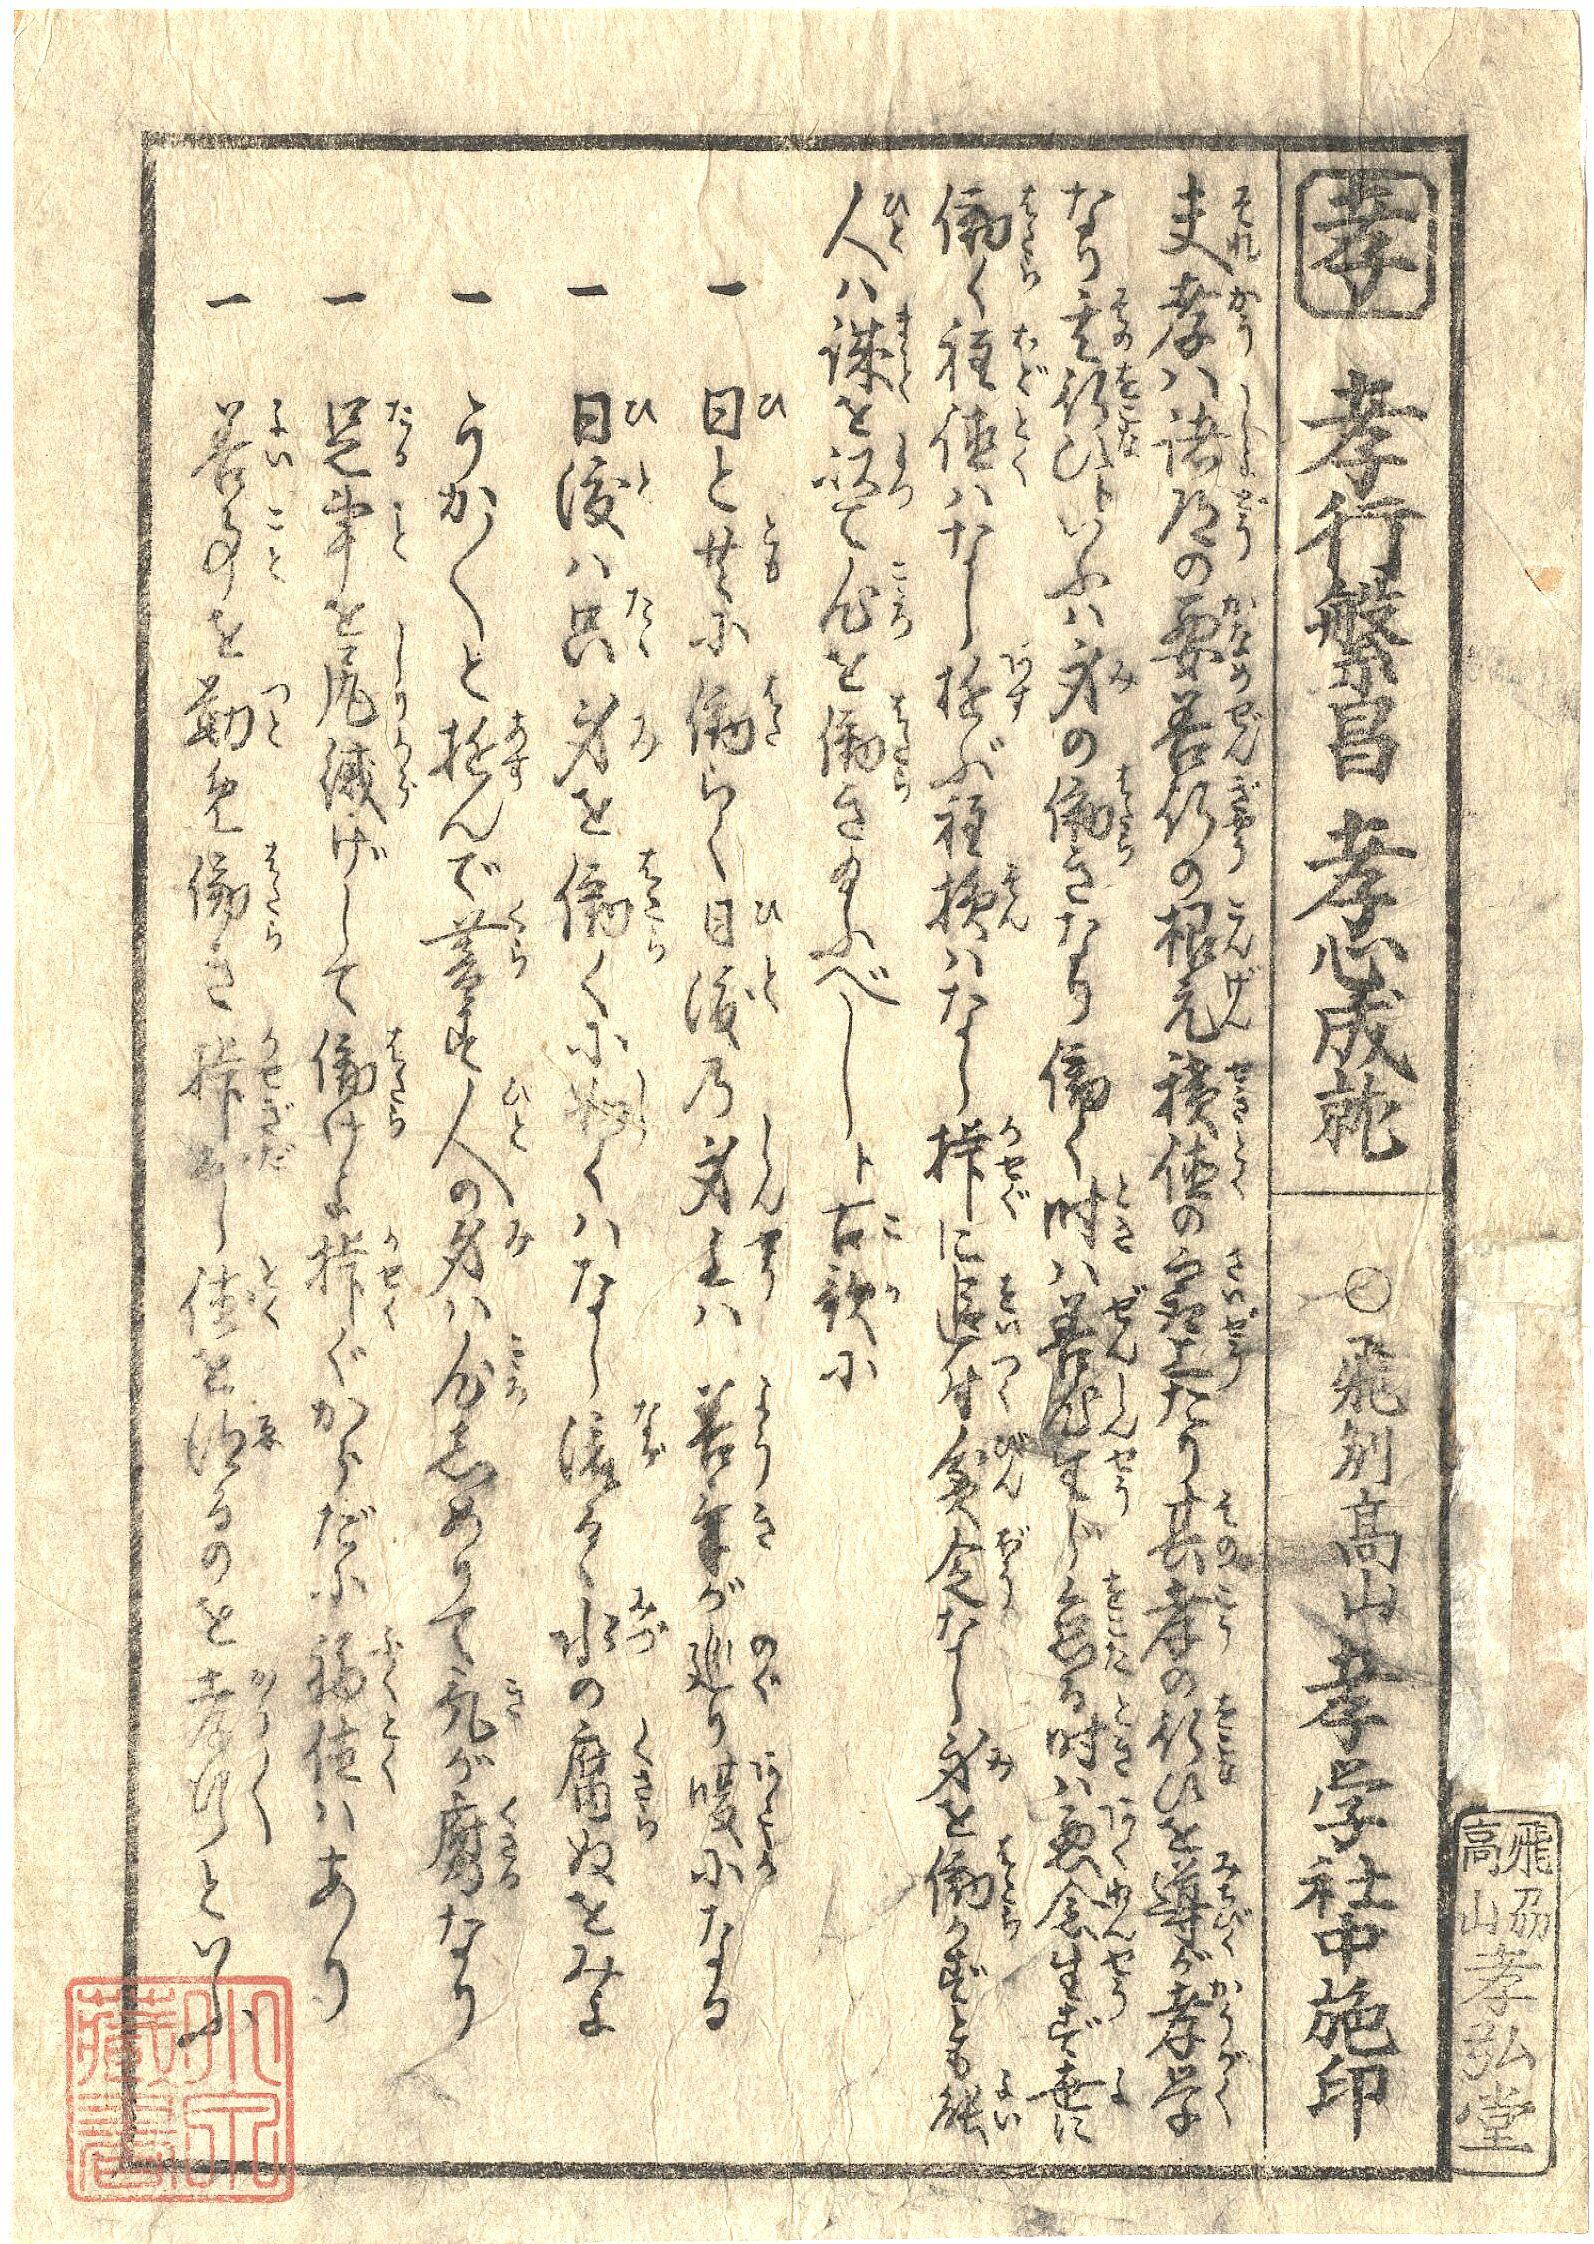 孝 孝行繁昌 孝心成就 ○飛州高山 孝学社中施印
夫孝ハ諸道の要善行の根元積徳の最上たり其孝の行ひを導が孝学
なり其行ひといふハ身の働きなり働く時ハ善心生じ怠る時ハ悪念生ず世に
働く程徳ハなし遊ぶ程損ハなし挊に追付貧乏なし身を働かずとも能
人ハ誠を以て心を働き給ふべしト古歌に
一 日と共に働らく日渡乃身上ハ善キ事が廻り暖になる
一 日渡ハ只身を働くに如くハなし流るゝ水の腐ぬをみよ
一 うか〳〵と遊んで暮す人の身ハ心しめりて気が腐なり
一 足事を尻減げして働けよ挊ぐからだに福徳ハあり
一 善事を勤免働き挊出し徳を治るのを孝行といふ
飛刕高山 孝弘堂
蔵書